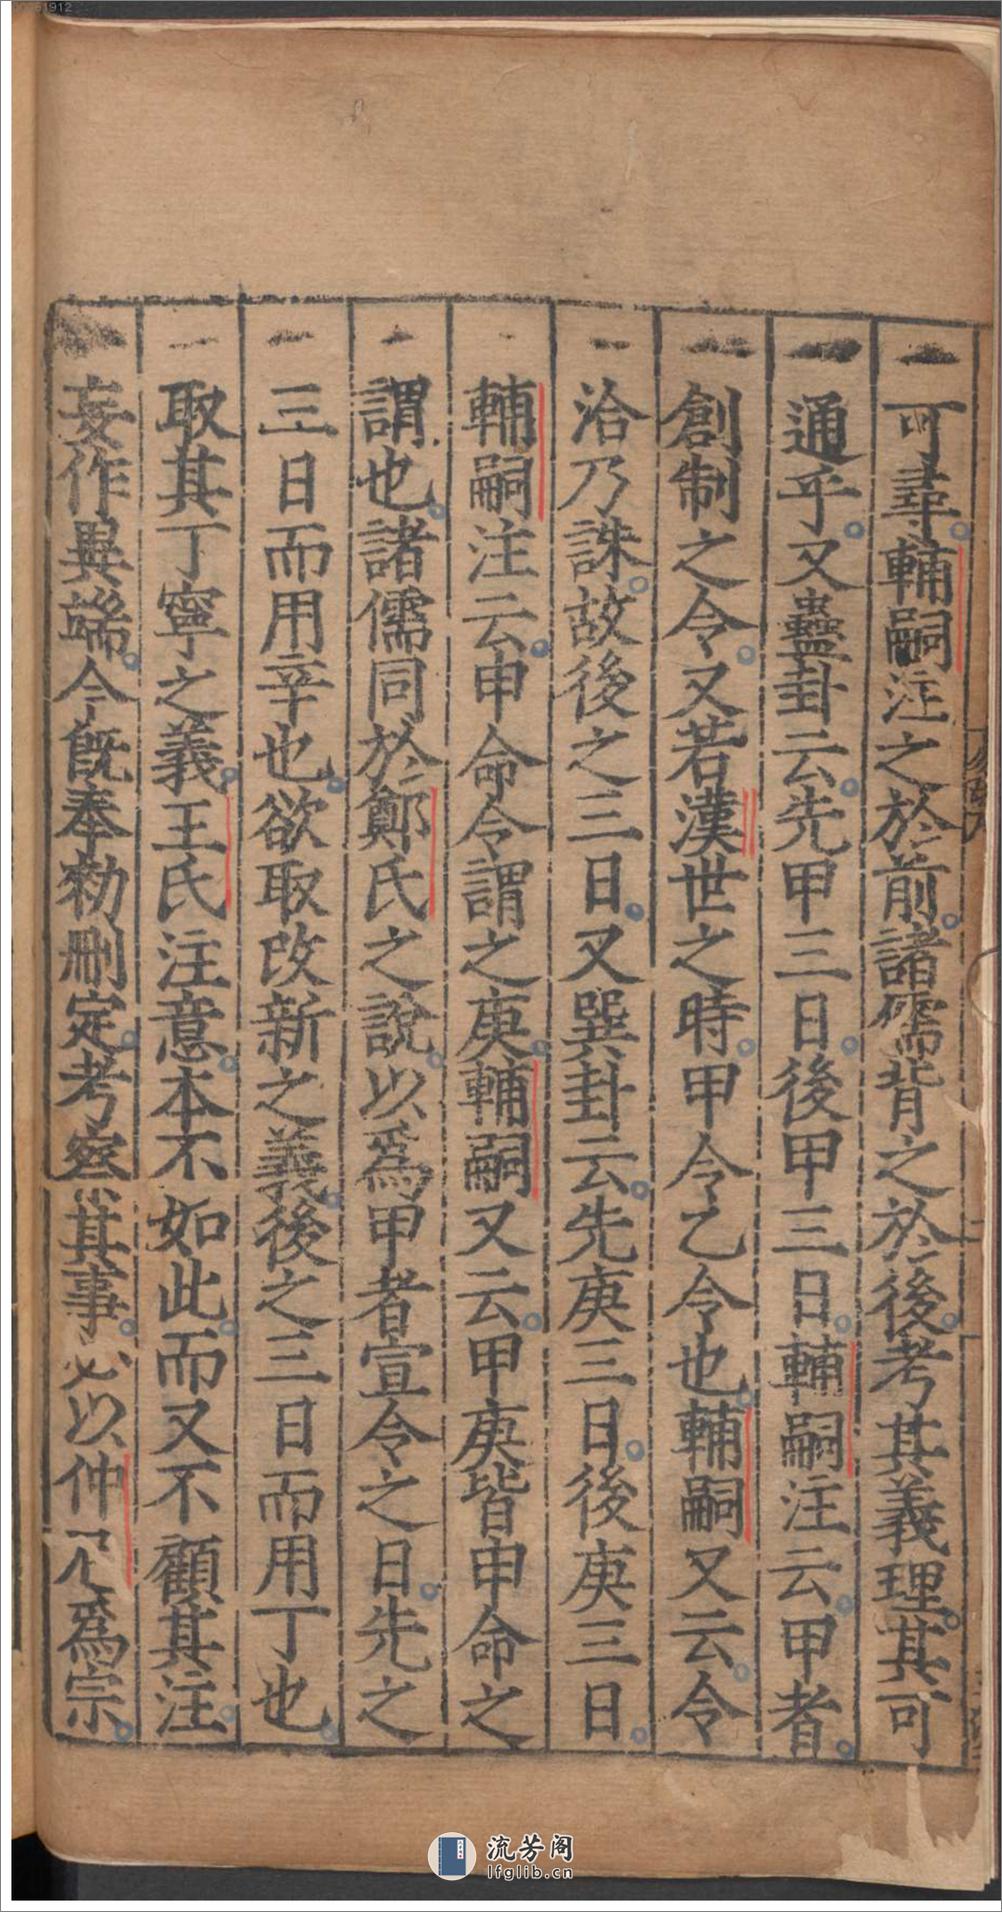 可尋輔嗣注之於前諸儒背之於後考其義理其可
通乎又蠱卦云先甲三日後甲三日輔嗣注云甲者
創制之令又若漢世之時甲令乙令也輔嗣又云令
洽乃誅故後之三日又巽卦云先庚三日後庚三日
輔嗣注云申命令謂之庚輔嗣又云甲庚皆申命之
謂也諸儒同於鄭氏之說以爲甲者宣令之日先之
三日而用辛也欲取改新之義後之三日而用丁也
取其丁寧之義王氏注意本不如此而又不顧其注
妄作異端今既奉勑刪定考察其事必以仲尼爲宗
流芳阁
lfglib.cn